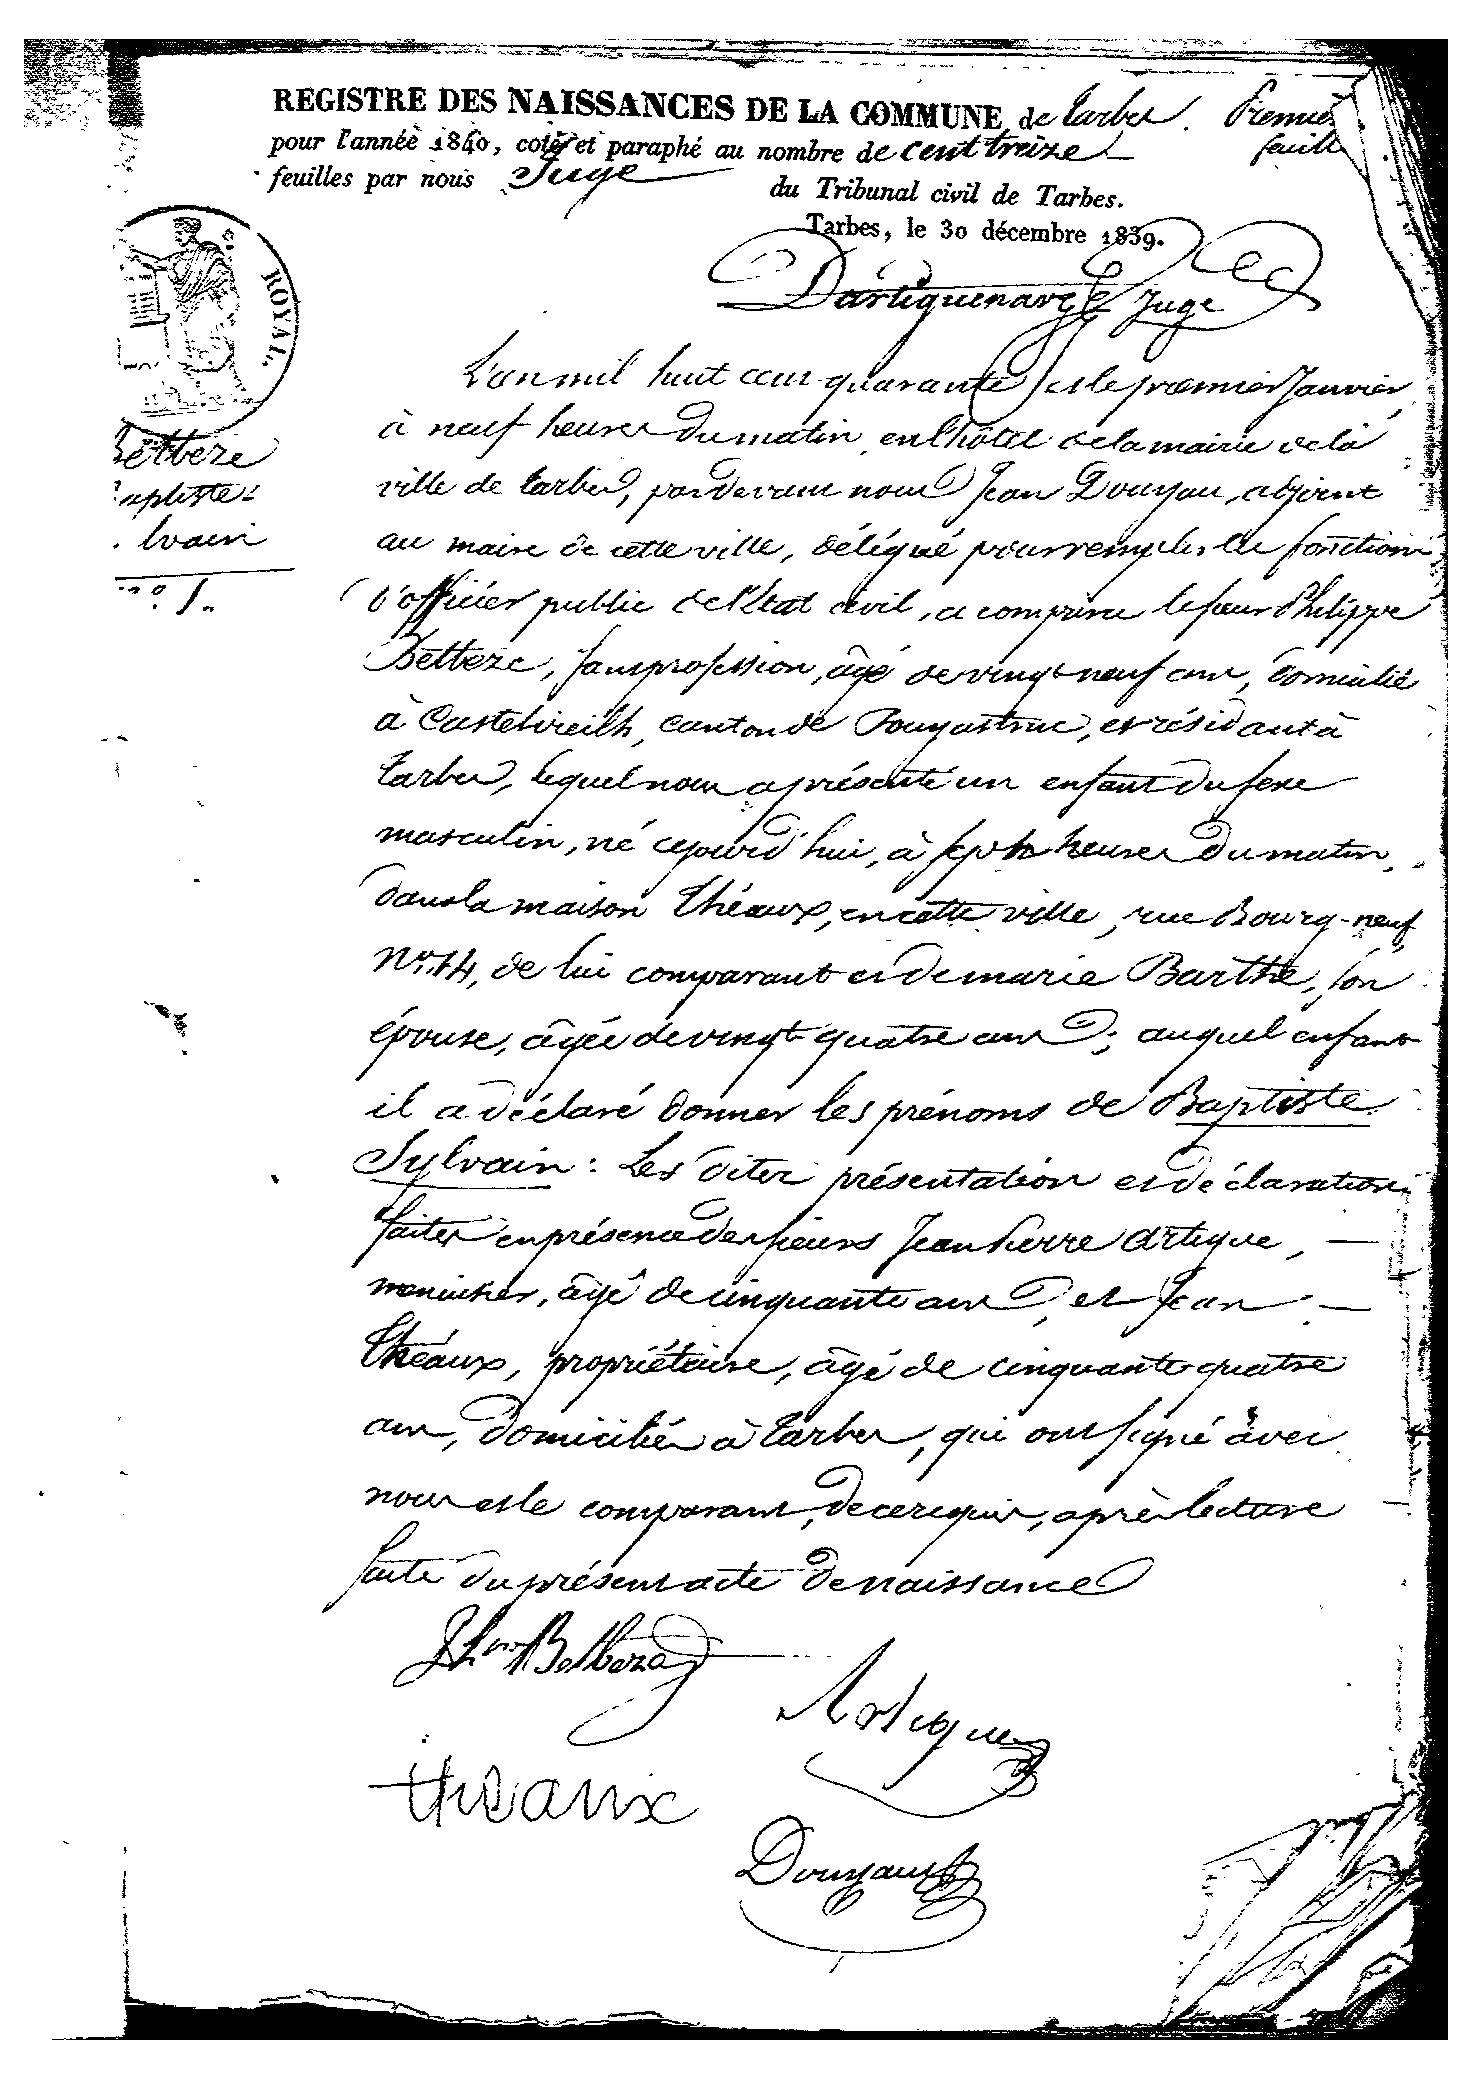 REGISTRE DES NAISSANCES DE LA COMMUNE de Tarbes. Premie
feuill
pour l'année 1840, coté et paraphé au nombre de cent treize
feuilles par nous Juge
du Tribunal civil de Tarbes.
Tarbes, le 30 décembre 1839.
Dartiguenave Juge
ROYAL.
Betbeze
aptiste
lvain
no 1.
L'an mil huit cent quarante et le premier Janvier,
à neuf heures du matin, en l'hôtel de la mairie de la
ville de Tarbes, par devant nous Jean Douyau, adjoint
au maire de cette ville, délégué pour remplir les fonctions
d'officier public de l'état civil, a comparu le sieur Philippe
Betbeze, sans profession, âgé de vingt-neuf ans, domicilié
à Castelvieilh, canton de Pouyastruc, et résidant à
Tarbes, lequel nous a présenté un enfant du sexe
masculin, né cejourd'hui, à sept heures du matin,
dans la maison Théaux, en cette ville, rue Bourg-neuf
No. 14, de lui comparant et de marie Barthe, son
épouse, âgée de vingt quatre ans; auquel enfant
il a déclaré donner les prénoms de Baptiste
Sylvain: Les dites présentation et déclaration
faites en présence des sieurs Jean Pierre Artigue,
menuisier, âgé de cinquante ans, et Jean
Théaux, propriétaire, âgé de cinquante quatre
ans, domiciliés à Tarbes, qui ont signé avec
nous et le comparant, de ce requis, après lecture
faite du présent acte de naissance
Betbeze
Artigue
theaux
Douyau